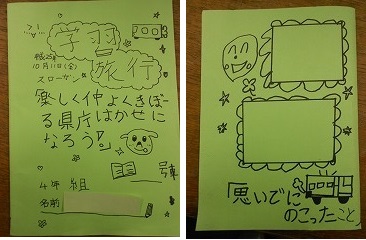 学習
旅行
平成25年
10月11日(金)
スローガン
楽しく仲よくきぼー
る県庁はかせに
なろう!
号車
4年 組
名前
思いでに
のこったこと